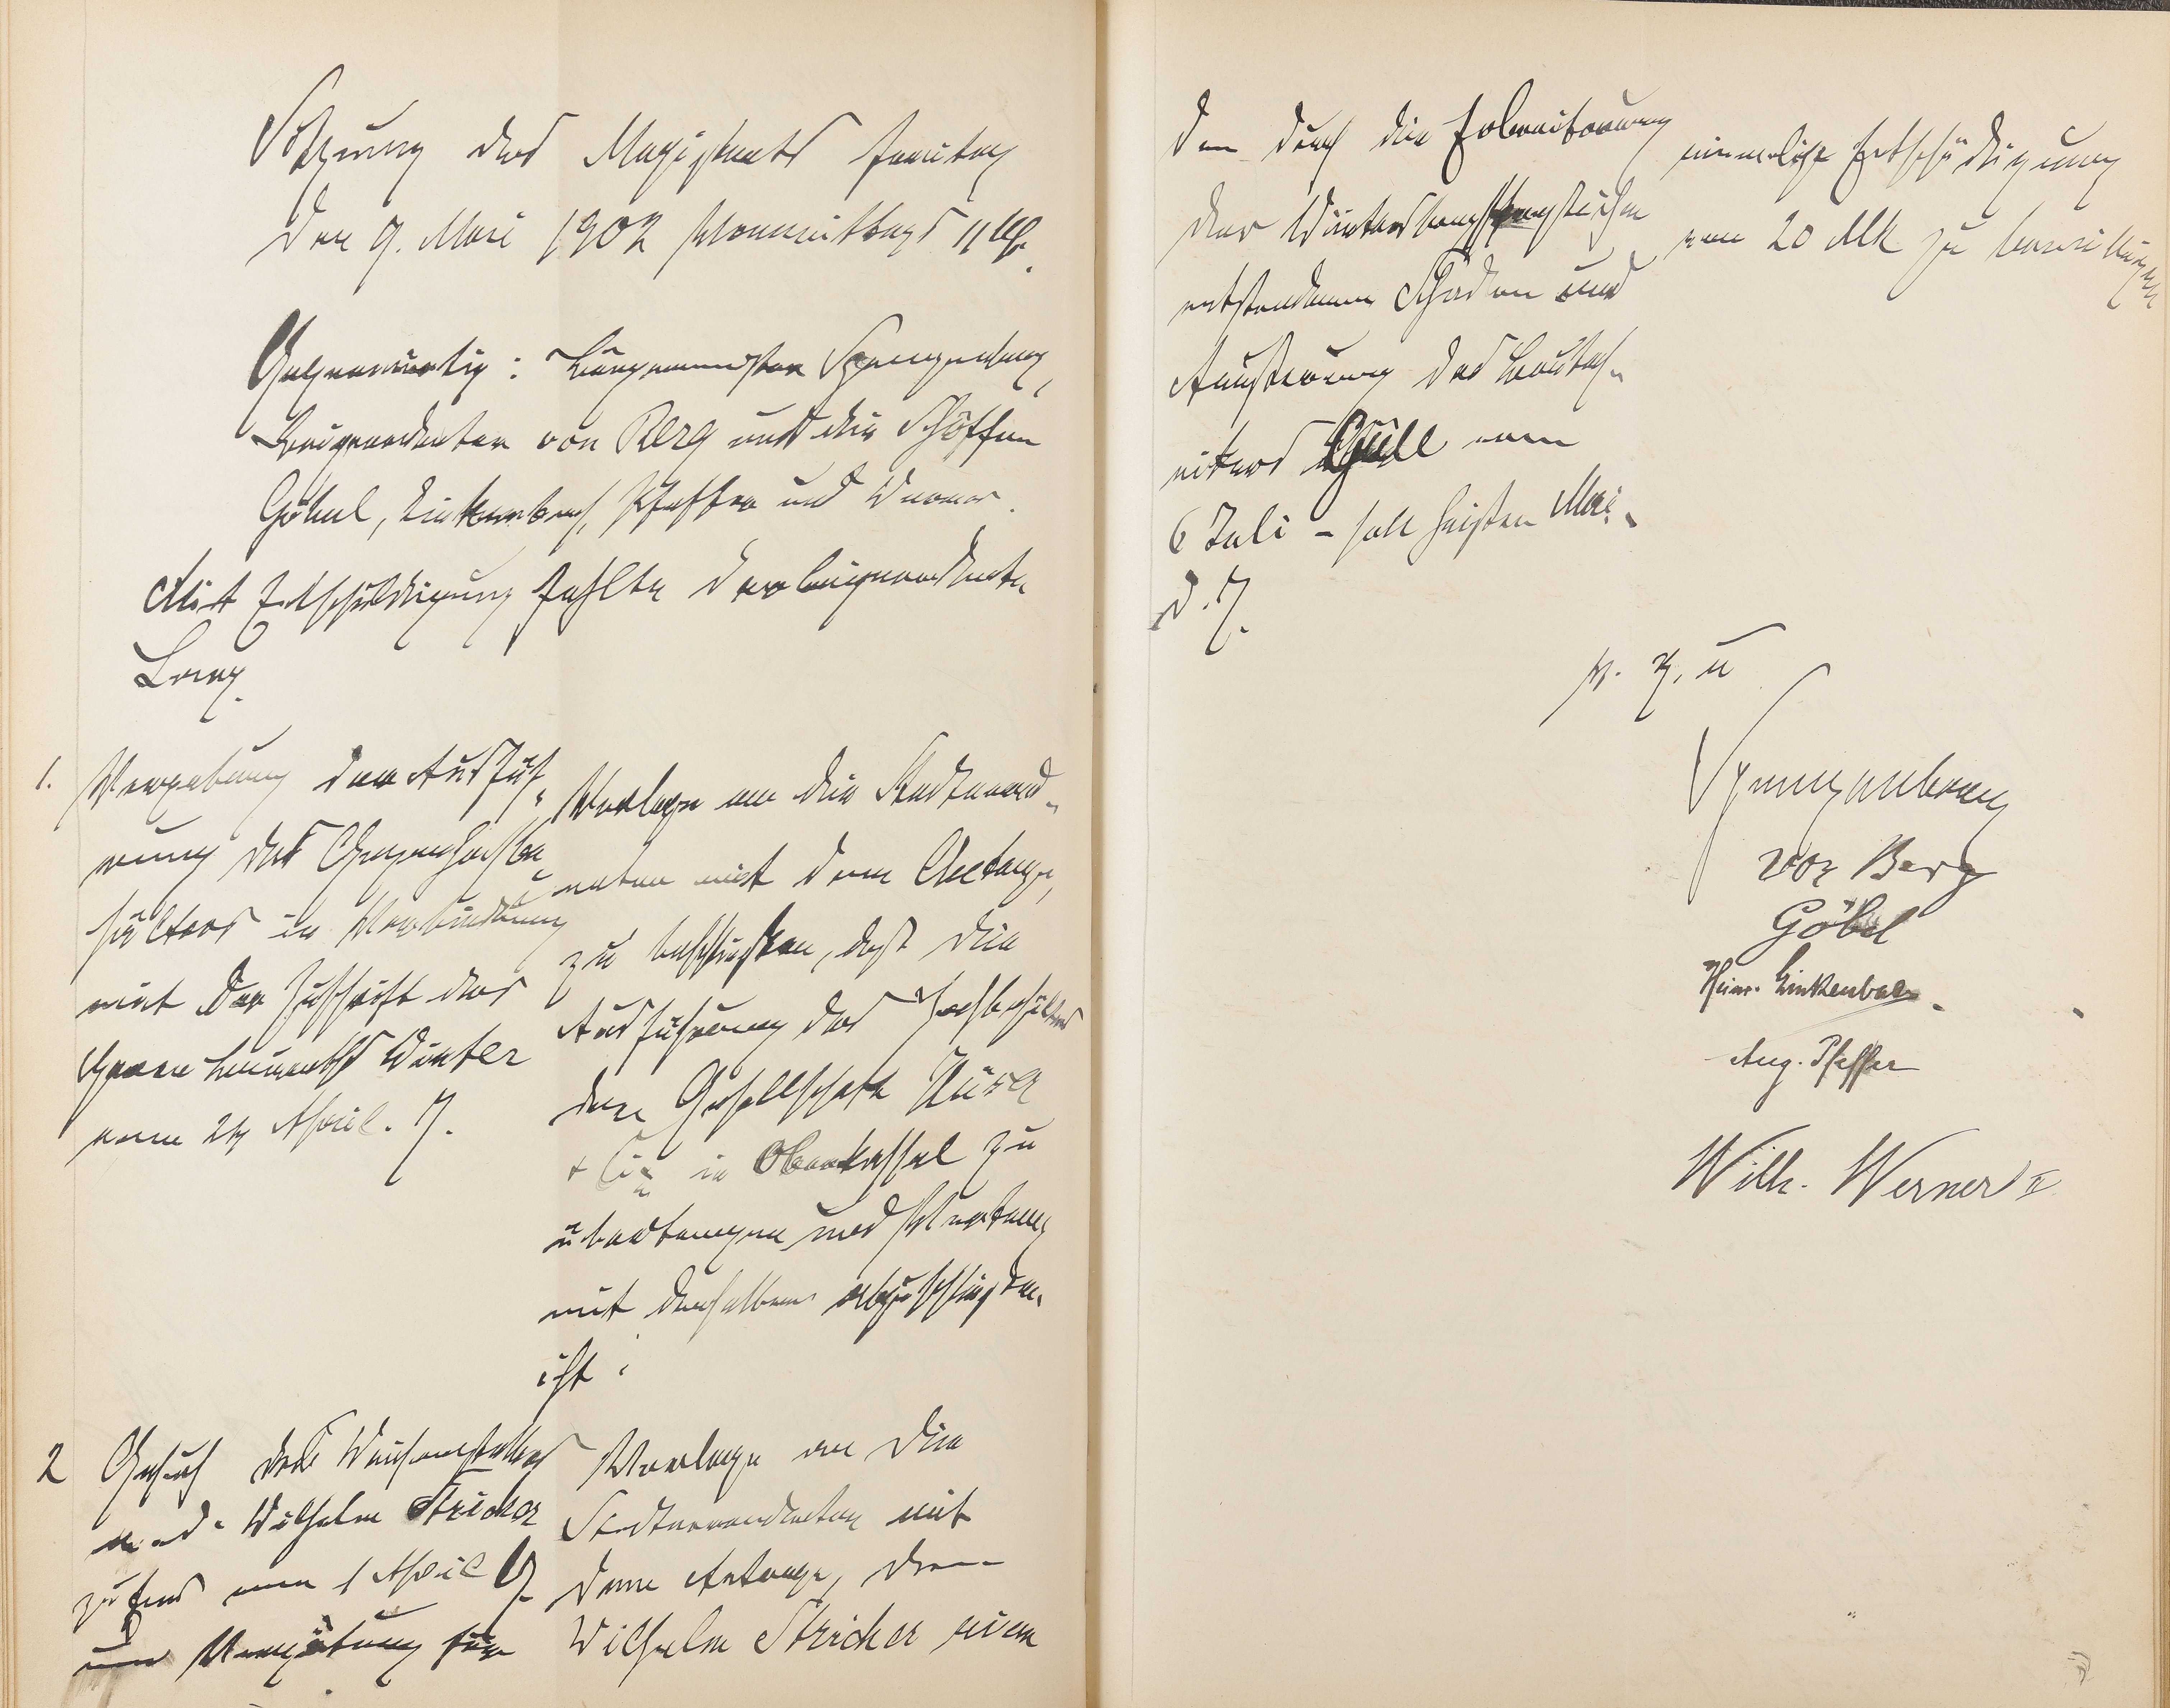 Sitzung des Magistrats Freitag
den 9. Mai 1902 Vormittags 11 Uhr.
Gegenwärtig: Bürgermeister Spangenberg,
Beigeordneter von Berg und die Schöffen
Göbel, Linkenbach, Pfeffer und Werner.
Mit Entschuldigung fehlte der Beigeordnete
Lang.
1.
Vergebung der Ausfüh-
rung des
hälters in Verbindung
mit der Zuschrift des
Herrn Bauraths Winter
vom 24 April. J.
Vorlage an die Stadtverord-
neten mit dem Antrage,
zu beschließen, daß die
Ausführung des Hochbehälters
der Gesellschaft Hüser
& Cie in Oberkassel zu
übertragen und Vertrag
mit derselben abzuschließen
ist.
2
Gesuch des
Wilhelm Stricker
vom 1 April J.
um Vergütung für
Vorlage an die
Stadtverordneten mit
dem Antrage, dem
Wilhelm Stricker eine
den durch die Erbreiterung
des
entstandenen Schaden und
Äußerung des Bautech-
nikers vom
6 Juli - soll heißen Mai
d. J.
einmalige Entschädigung
von 20 Mk zu bewilligen
v. g. u
Spangenberg
von Berg
Göbel
Heinr. Linkenbach.
Aug. Pfeffer
Wilh. Werner II